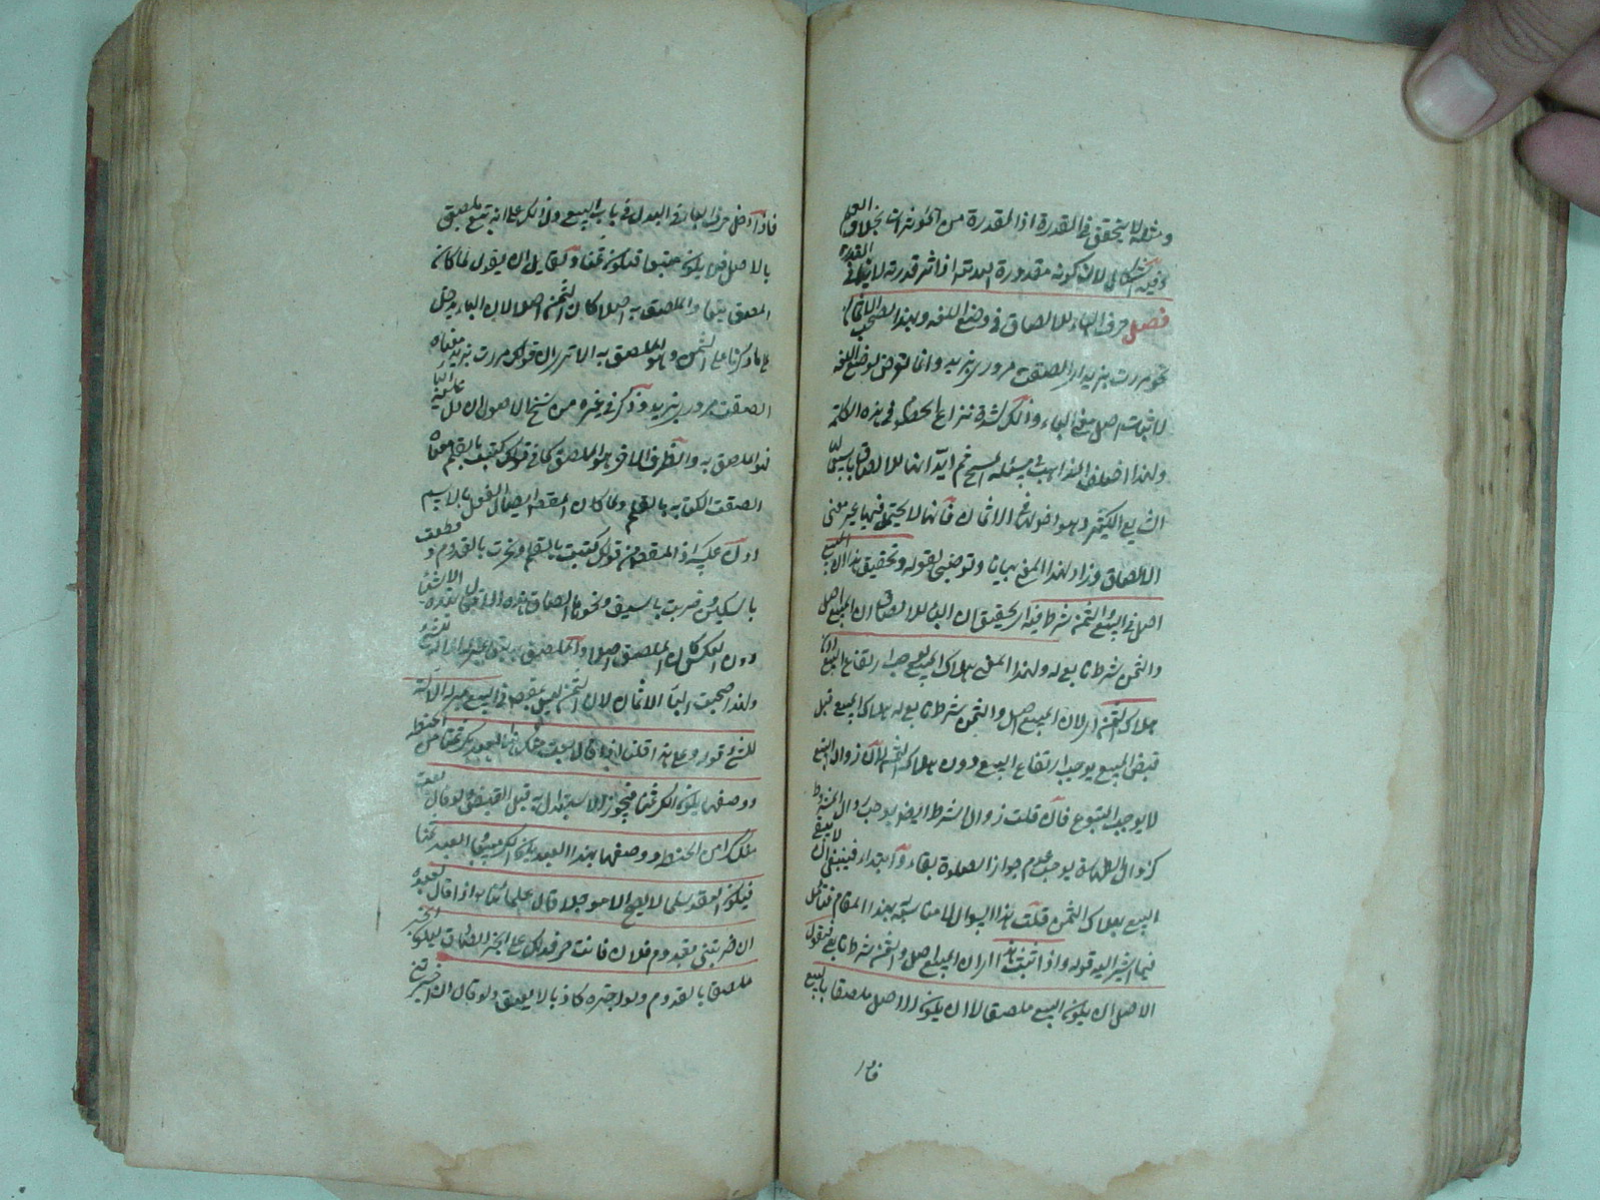 ومثله لا يتحقق في القدرة اذ المقدرة من المؤثرات بخلاف العلم
وفيه اشكال لان كونه مقدورة اثر قدرته لا
فصل حرف الباء للالصاق في وضع اللغة ولهذا تصحب الاثمان
نحو مررت بزيد اي الصقت مروري بزيد وانما تعرض لوضع اللغة
لاثبات اصل معنى الباء وذلك لشدة نزاع الخصوم في هذه الكلمة
ولهذا اختلف المذاهب في مسئلة المسح ثم ايد انها للالصاق
الشايع الكثير وهو دخولها في الاثمان فانها لا يحتمل فيها غير معنى
الالصاق وزاد لهذا المعنى بيانا وتوضيحا بقوله وتحقيق هذا ان المبيع
اصل في البيع والثمن شرط فيه اي تحقيق ان الباء للالصاق ان المبيع اصل
والثمن شرط تابع له ولهذا المعنى هلاك المبيع يوجب ارتفاع البيع دون
هلاك الثمن اي لان المبيع اصل والثمن شرط تابع له هلاك المبيع قبل
قبض المبيع يوجب ارتفاع البيع دون هلاك الثمن لان زوال التبع
لا يوجب المتبوع فان قلت زوال الشرط ايضا يوجب زوال المشروط
كزوال الطهارة يوجب عدم جواز الصلوة بقاء وابتداء فينبغي ان لا يبقى
البيع بهلاك الثمن قلت هذا السوال لا مناسبة بهذا المقام فتامل
فيما اشير اليه قوله واذا ثبت هذا اي ان المبيع اصل والثمن شرط تابع فنقول
الاصل ان يكون التبع ملصقا لا ان يكون الاصل ملصقا بالتبع
فاذا
فاذا دخل حرف الباء في البدل في باب البيع دل ذلك على انه تبع ملصق
بالاصل فلا يكون مبيعا فيكون ثمنا ولقايل ان يقول لما كان
الملصق تبعا والملصق به اصلا كان الثمن اصلا لان الباء دخل
على ما ذكرنا على الثمن وهو الملصق به الا ترى ان قولك مررت بزيد معناه
الصقت مروري بزيد وذكر في غيره من نسخ الاصول ان ما دخل عليه الباء
هو الملصق به والطرف الاخر هو الملصق كما في قولك كتبت بالقلم معناه
الصقت الكتابة بالقلم ولما كان المقصود ايصال الفعل بالاسم
دون عكسه اذ المقصود من قولك كتبت بالقلم ونحرت بالقدوم وقطعت
بالسكين وضربت بالسيف ونحوها الصاق هذه الافعال بهذه الاشياء
دون العكس كان الملصق اصلا والملصق به تبعا بمنزلة الآلة للشئ
ولهذا صحبت الباء الاثمان لان الثمن ليس بمقصود في البيع بمنزلة الآلة
للشئ قوله وعلى هذا قلنا اذا قال بعت منك هذا العبد بكر من الحنطة
ووصفها يكون الكر ثمنا فيجوز الاستبدال به قبل القبض ولو قال بعت
منك كرا من الحنطة ووصفها بهذا العبد يكون الكر مبيعا والعبد ثمنا
فيكون العقد سلما لا يصح الا مؤجلا قال علماؤنا اذا قال لعبده
ان اخبرتني بقدوم فلان فانت حر فذلك على الخبر الصادق ليكون الخبر
ملصقا بالقدوم ولو اخبره كاذبا لا يعتق ولو قال ان اخبرتني